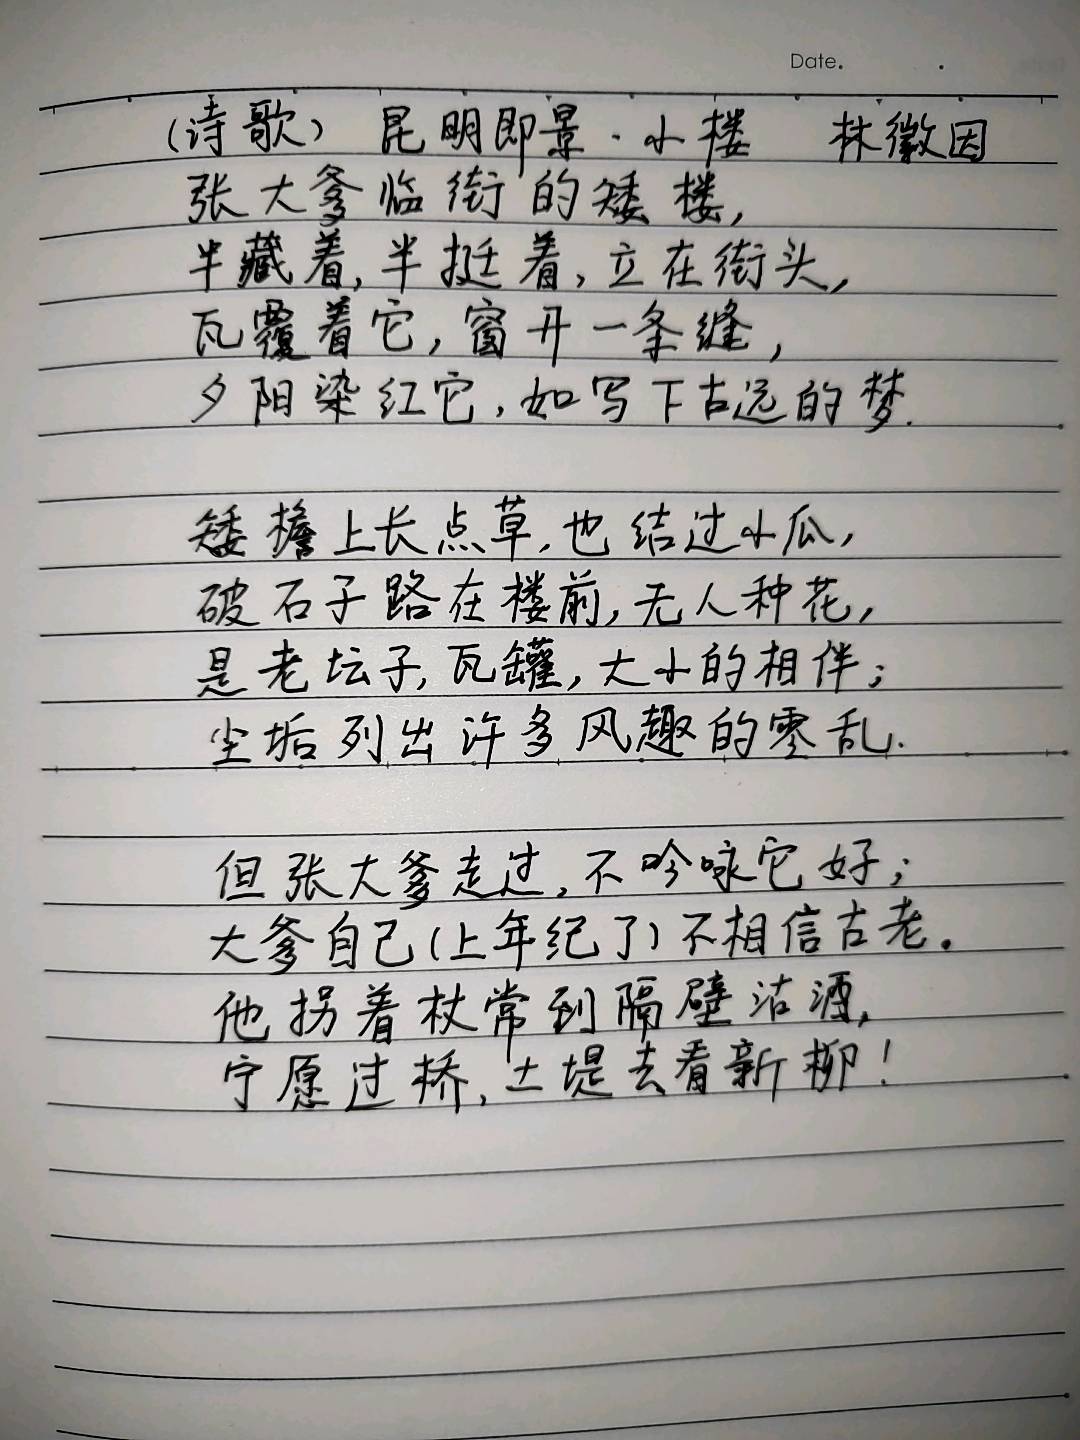 Date.
(诗歌) 昆明即景·小楼 林徽因
张大爹临街的矮楼,
半藏着,半挺着,立在街头,
瓦覆着它,窗开一条缝,
夕阳染红它,如写下古远的梦.
矮檐上长点草,也结过小瓜,
破石子路在楼前,无人种花,
是老坛子,瓦罐,大小的相伴;
尘垢列出许多风趣的零乱.
但张大爹走过,不吟咏它好;
大爹自己(上年纪了)不相信古老。
他拐着杖常到隔壁沽酒,
宁愿过桥,土堤去看新柳!